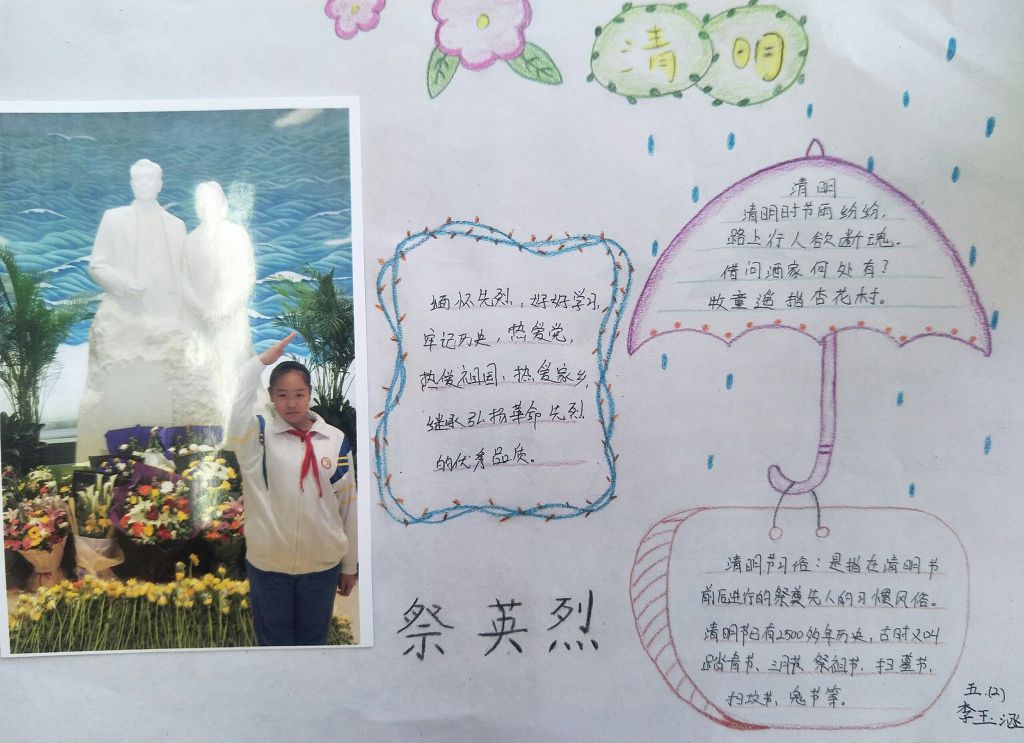 清明
清明
清明时节雨纷纷，
路上行人欲断魂。
借问酒家何处有？
牧童遥指杏花村。
缅怀先烈，好好学习，
牢记历史，热爱党，
热爱祖国，热爱家乡，
继承弘扬革命先烈
的优秀品质。
祭英烈
清明节习俗：是指在清明节
前后进行的祭奠先人的习惯风俗。
清明节已有2500多年历史，古时又叫
踏青节、三月节、祭祖节、扫墓节、
扫坟节、鬼节等。
五.(2)
李玉涵